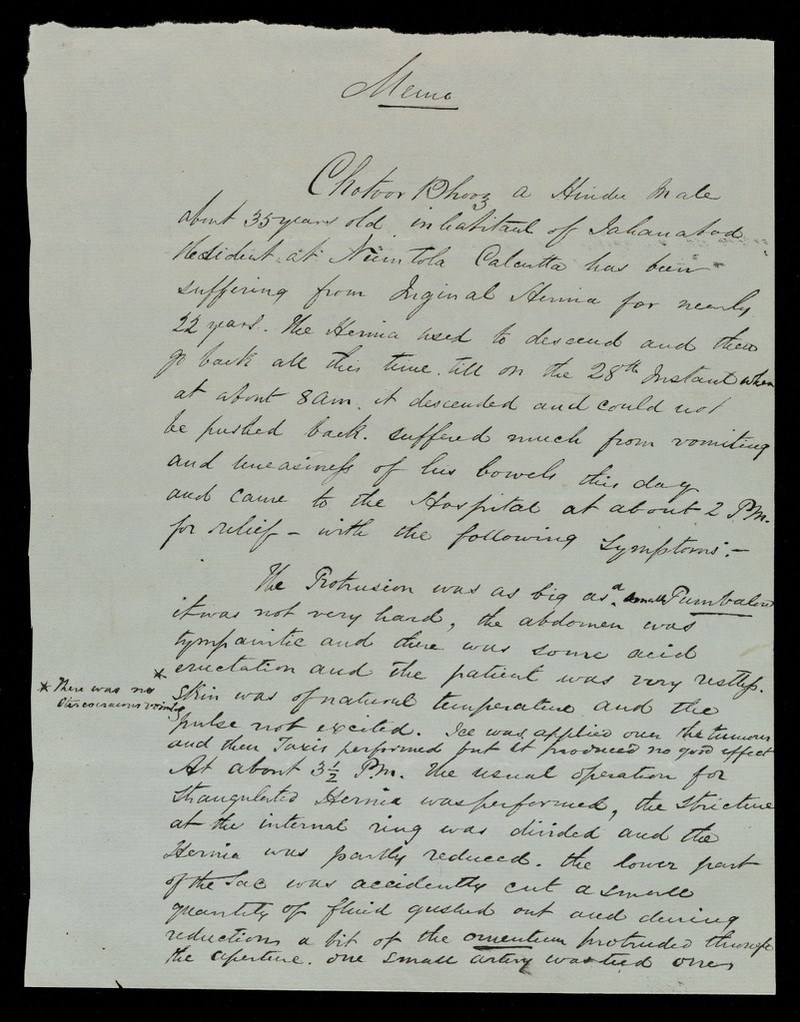 Memo
Chotoor Bhooz a Hindu Male
about 35 years old inhabitant of Jahanabad
Resident at Nimtola Calcutta has been
suffering from Inginal Hernia for nearly
22 years. The Hernia used to descend and then
go back all this time. till on the 28th Instant when
at about 8 am. it descended and could not
be pushed back. suffered much from vomiting
and uneasiness of his bowels this day
and came to the Hospital at about 2 P.M.
for relief - with the following Symptoms:-
The Protrusion was as big as a small
it was not very hard, the abdomen was
tympanitic and there was some acid
eructation and the patient was very restless.
* There was no
vomiting
* Skin was of natural temperature and the
pulse not excited. Ice was applied over the tumour
and then Taxis performed but it produced no good effect
At about 3½ P.M. the usual operation for
Strangulated Hernia was performed, the Stricture
at the internal ring was divided and the
Hernia was partly reduced. the lower part
of the Sac was accidently cut a small
quantity of fluid gushed out and during
reduction a bit of the omentum protruded through
the aperture. one small artery was tied over